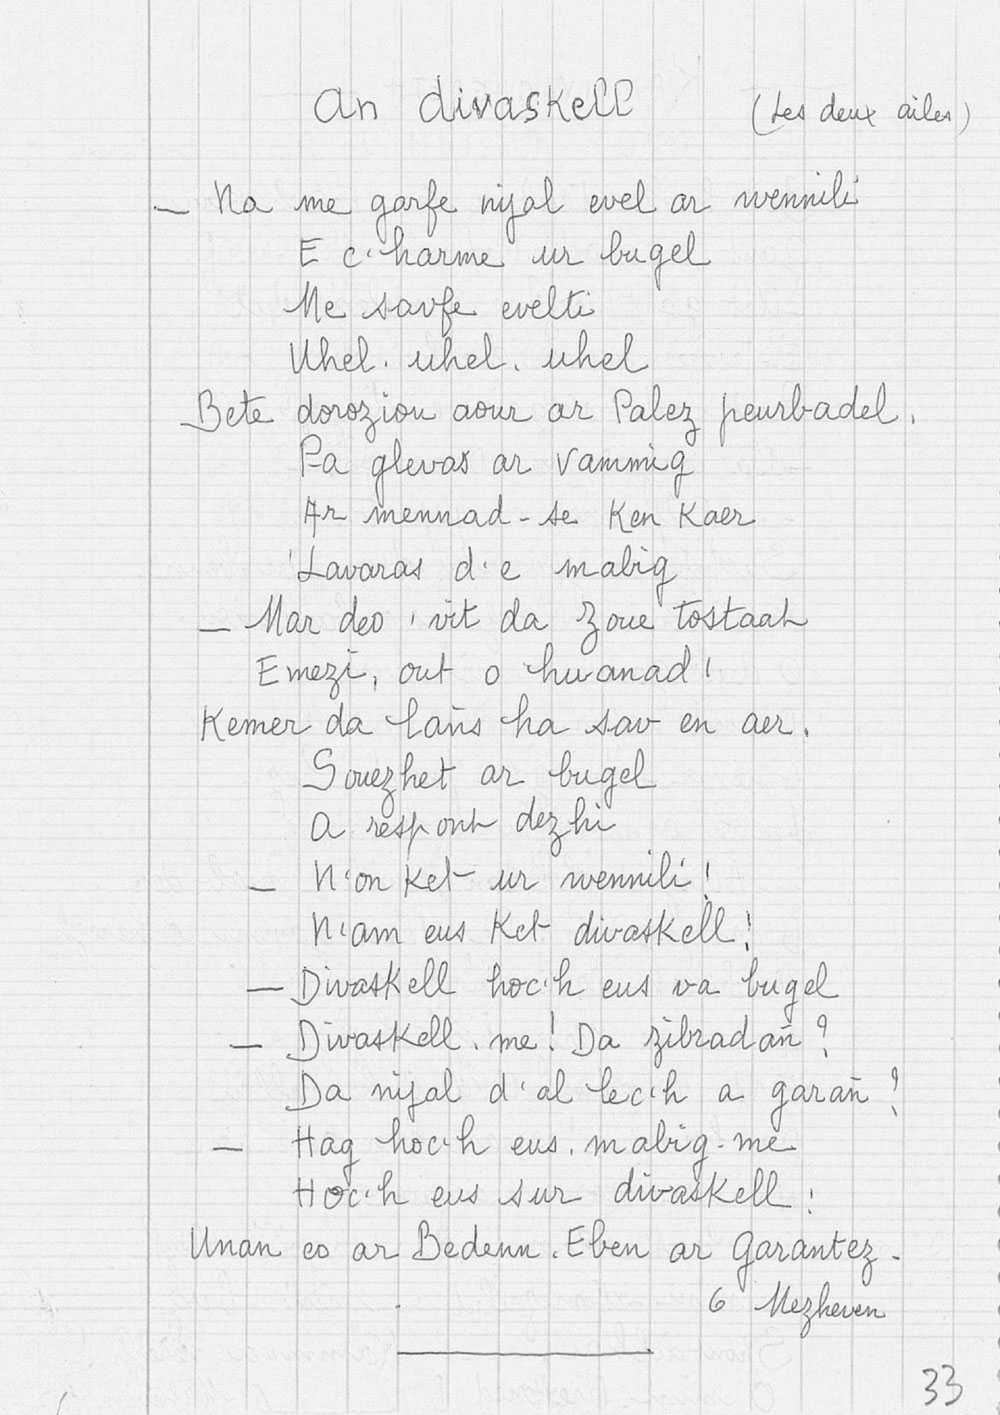 An divaskell (Les deux ailes)
_ Na me garfe nijal evel ar wennili
E c'harme ur bugel
Me savfe evelti
Uhel. uhel. uhel
Bete dorozioù aour ar Palez peurbadel.
Pa glevas ar vammig
Ar mennad-se ken kaer
'Lavaras d'e mabig
_ Mar deo 'vit da Zoue tostaat
Emezi, out o huanad!
Kemer da lañs ha sav en aer.
Souezhet ar bugel
A respont dezhi
_ N'on ket ur wennili!
N'am eus ket divaskell!
_ Divaskell hoc'h eus va bugel
_ Divaskell. me! Da zibradañ?
Da nijal d'al lec'h a garan?
_ Hag hoc'h eus. mabig-me
Hoc'h eus sur divaskell:
Unan eo ar Bedenn. Eben ar Garantez.
6 Mezheven
33